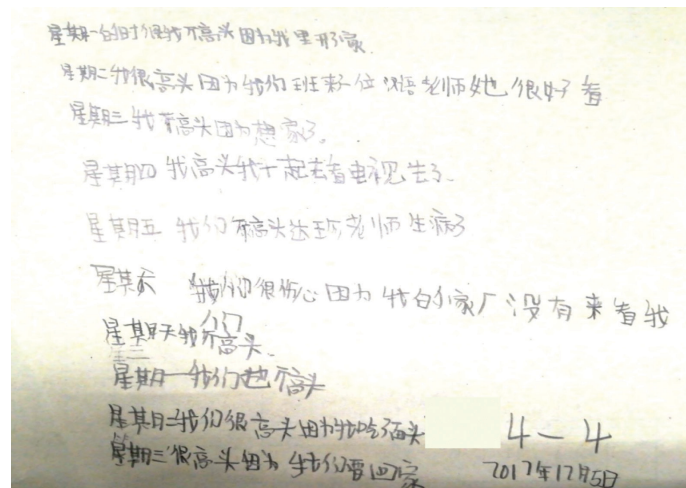 星期一的时候我不高头因为我里开了家.
星期二我很高头因为我们班来了一位汉语老师她也很好看
星期三我不高头因为想家了。
星期四我高头我十起去看电视生了.
星期五我们不高头达王尔老师生病了
星其六 我们很伤心因为我白勺家厂没有来看我
们
星期天我不高头.
星期一我们也不高头
星期二我们很高头因为我吃了面头
星期三很高头因为我们要回家
4-4
2017年12月5日